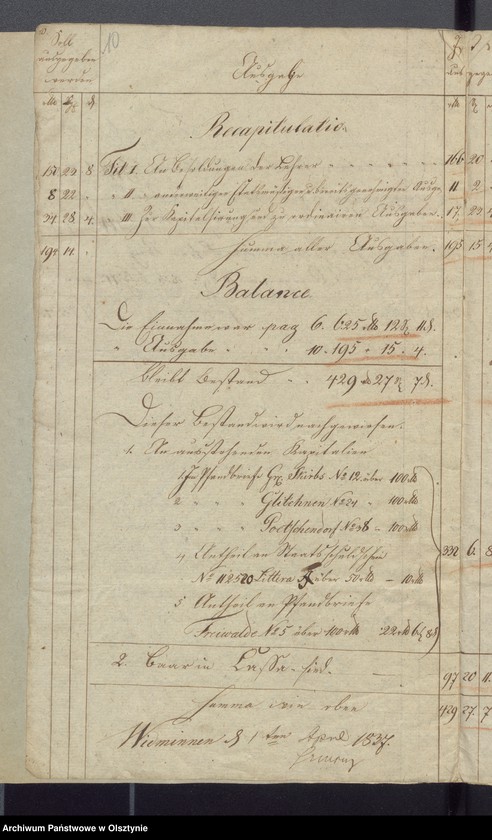 10
Soll
ausgegeben
werden
Ausgabe
Recapitulatio.
150 22 8 Tit. I. An Besoldungen der Lehrer 166 20
8 22 " II 11 2
34 28 4 " III. Zur Kapitalisirung und zu ordinairen Ausgaben. 17. 23
194 14 Summa aller Ausgaben. 195 15 4
Balance.
Die Einnahme war pag 6. 625 12 11
" Ausgabe " 10. 195 " 15. 4.
bleibt Bestand 429 27 7
Dieser Bestand wird nachgewiesen.
1. An ausstehenden Kapitalien
1. In Pfandbriefe Gr. Skirbs No 12 über 100
2 Glittehnen No 24 - 100
3 Poetschendorf No 38 - 100
4 Antheil an Staatsschuldschein 332 6. 8
No 112520 Littra F über 50 - 10
5 Antheil an Pfandbriefe
Freiwalde No 5 über 100 22 6 8
2. Baar in Cassa sind. 97 20 11.
Summa wie oben 429 27. 7
Wieminnen d 1ten April 1837.
Archiwum Państwowe w Olsztynie